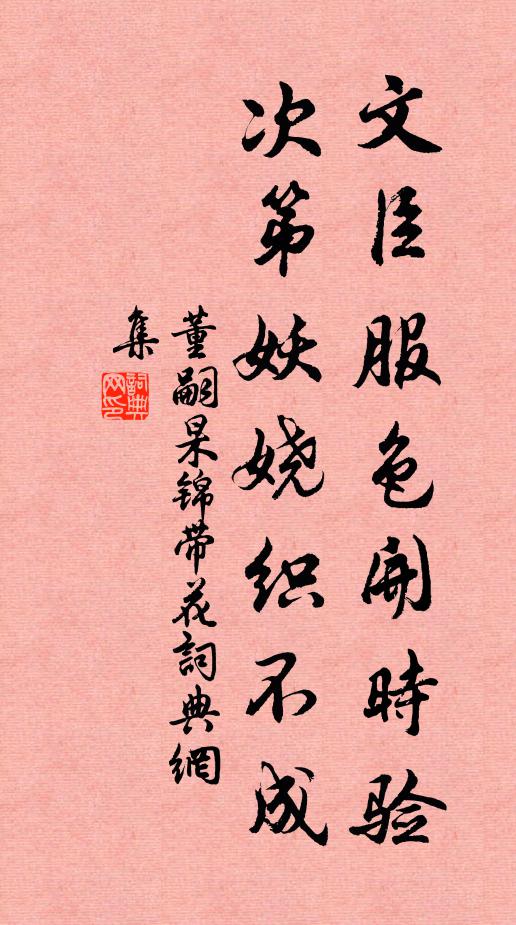 文臣服色開時验
次第妖娆织不成
董嗣杲锦带花詞典網
集
詞典
网印